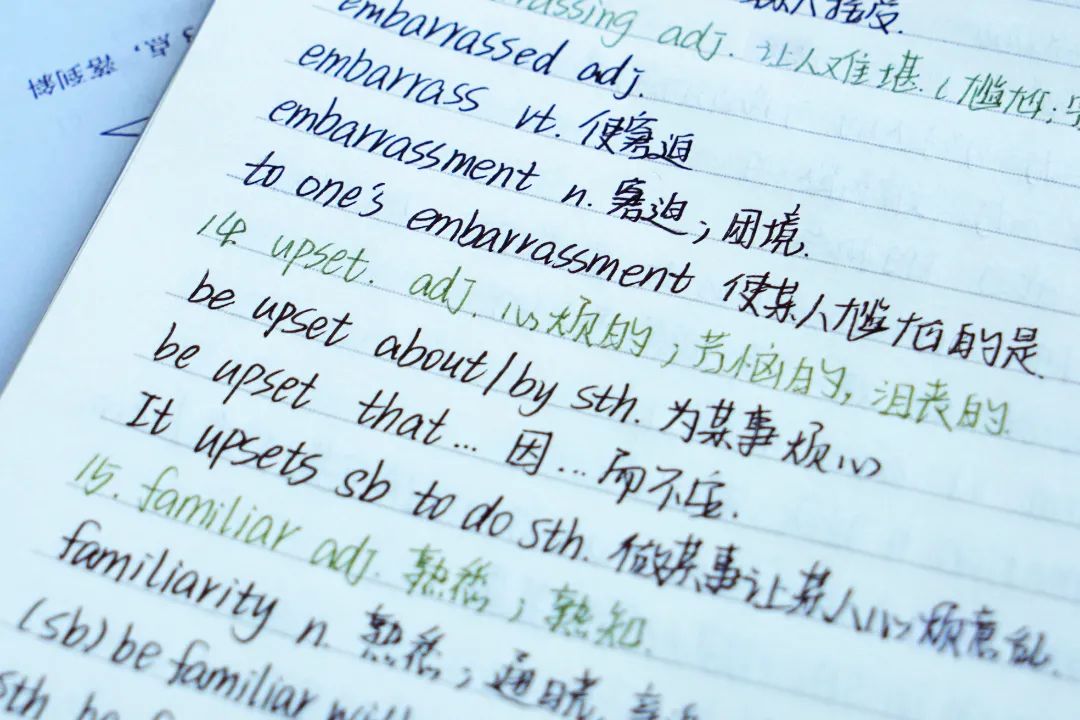 人接受.
rassing adj. 让人难堪.(尴尬;
embarrassed adj.
embarrass vt. 使窘迫
embarrassment n. 窘迫;困境.
to one's embarrassment 使某人尴尬的是
14. upset. adj. 心烦的;苦恼的,沮丧的.
be upset about/by sth. 为某事烦心
be upset that... 因...而不安.
It upsets sb to do sth. 做某事让某人心烦意乱.
15. familiar adj. 熟悉;熟知.
familiarity n. 熟悉;通晓.
(sb) be familiar with
sth be
点,落到斜